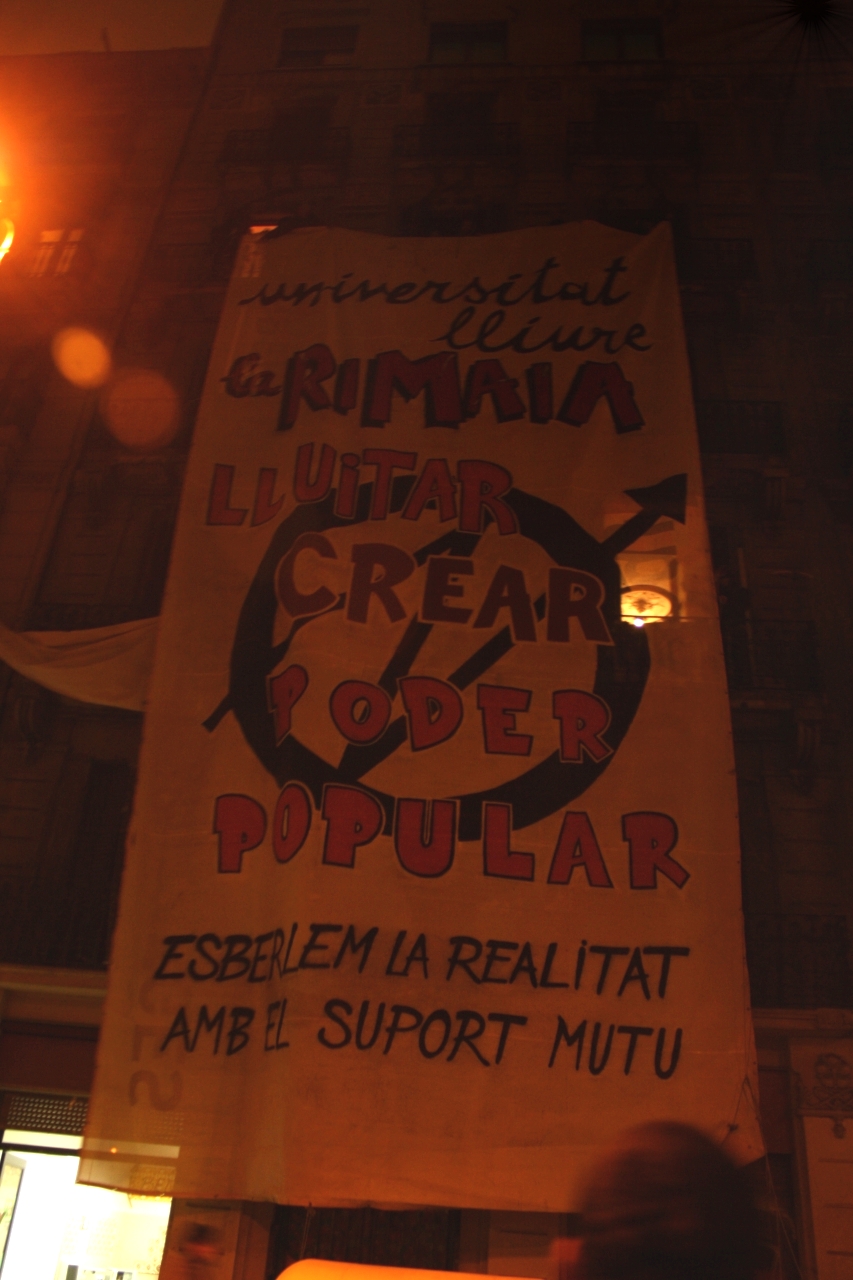 universitat
lliure
La RIMAIA
LLUiTAR
CREAR
PODER
POPULAR
ESBERLEM LA REALiTAT
AMB EL SUPORT MUTU